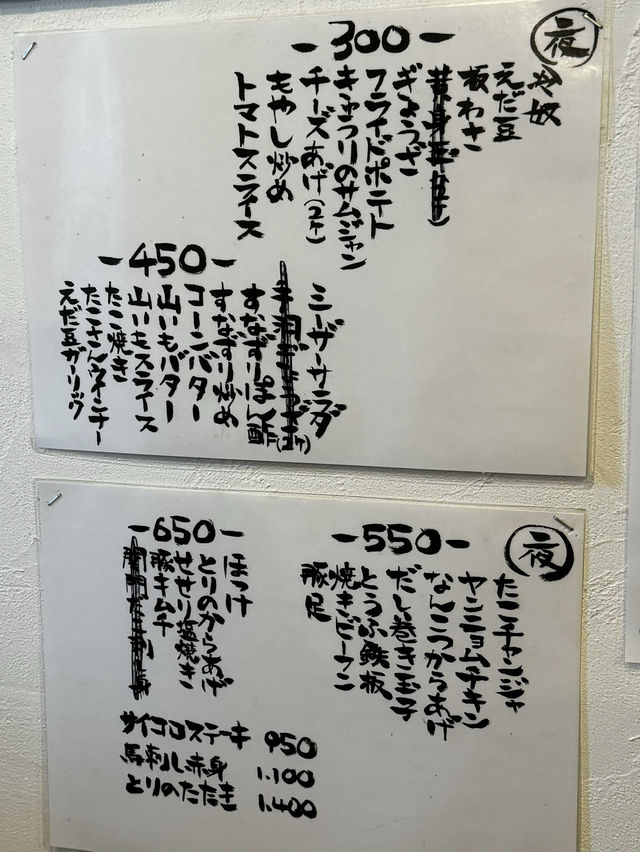 夜
-300-
冷奴
えだ豆
板わさ
ぎょうざ
フライドポテト
きゅうりのサムジャン
チーズあげ(2ケ)
もやし炒め
トマトスライス
-450-
シーザーサラダ
手羽ぎょうざ(2ケ)
すなずりぽん酢
すなずり炒め
コーンバター
山いもバター
山いもスライス
たこ焼き
たこさんウインナー
えだ豆ガーリック
夜
-550-
たこチャンジャ
ヤンニョムチキン
なんこつからあげ
だし巻き玉子
とうふ鉄板
焼きビーフン
豚足
-650-
ほっけ
とりのからあげ
せせり塩焼き
豚キムチ
サイコロステーキ 950
馬刺し赤身 1.100
とりのたたき 1.400